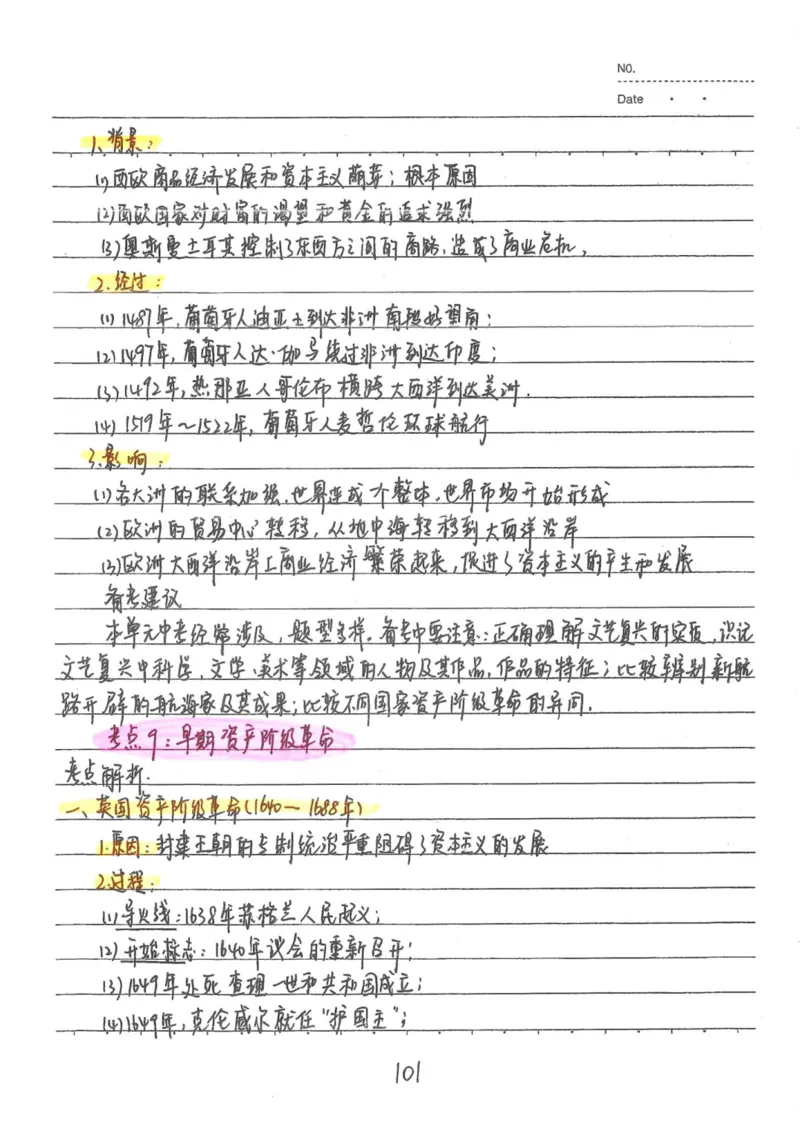 NO.
Date
1、背景：
(1)西欧商品经济发展和资本主义萌芽；根本原因
(2)西欧国家对财富的渴望和黄金的追求强烈
(3)奥斯曼土耳其控制了东西方之间的商路，造成了商业危机。
2.经过：
(1)1487年，葡萄牙人迪亚士到达非洲南段好望角；
(2)1497年，葡萄牙人达·伽马绕过非洲到达印度；
(3)1492年，热那亚人哥伦布横跨大西洋到达美洲.
(4)1519年～1522年，葡萄牙人麦哲伦环球航行
3.影响：
(1)各大洲的联系加强，世界连成个整体，世界市场开始形成
(2)欧洲的贸易中心转移，从地中海转移到大西洋沿岸
(3)欧洲大西洋沿岸工商业经济繁荣起来，促进了资本主义的产生和发展
备考建议
本单元中考经常涉及，题型多样。备考中要注意：正确理解文艺复兴的实质，识记
文艺复兴中科学、文学、美术等领域的人物及其作品，作品的特征；比较辨别新航
路开辟的航海家及其成果；比较不同国家资产阶级革命的异同.
考点9：早期资产阶级革命
考点解析.
一、英国资产阶级革命(1640—1688年)
1.原因：封建王朝的专制统治严重阻碍了资本主义的发展
2.过程：
(1)导火线：1638年苏格兰人民起义；
(2)开始标志：1640年议会的重新召开；
(3)1649年处死查理一世和共和国成立；
(4)1649年，克伦威尔就任“护国主”；
101